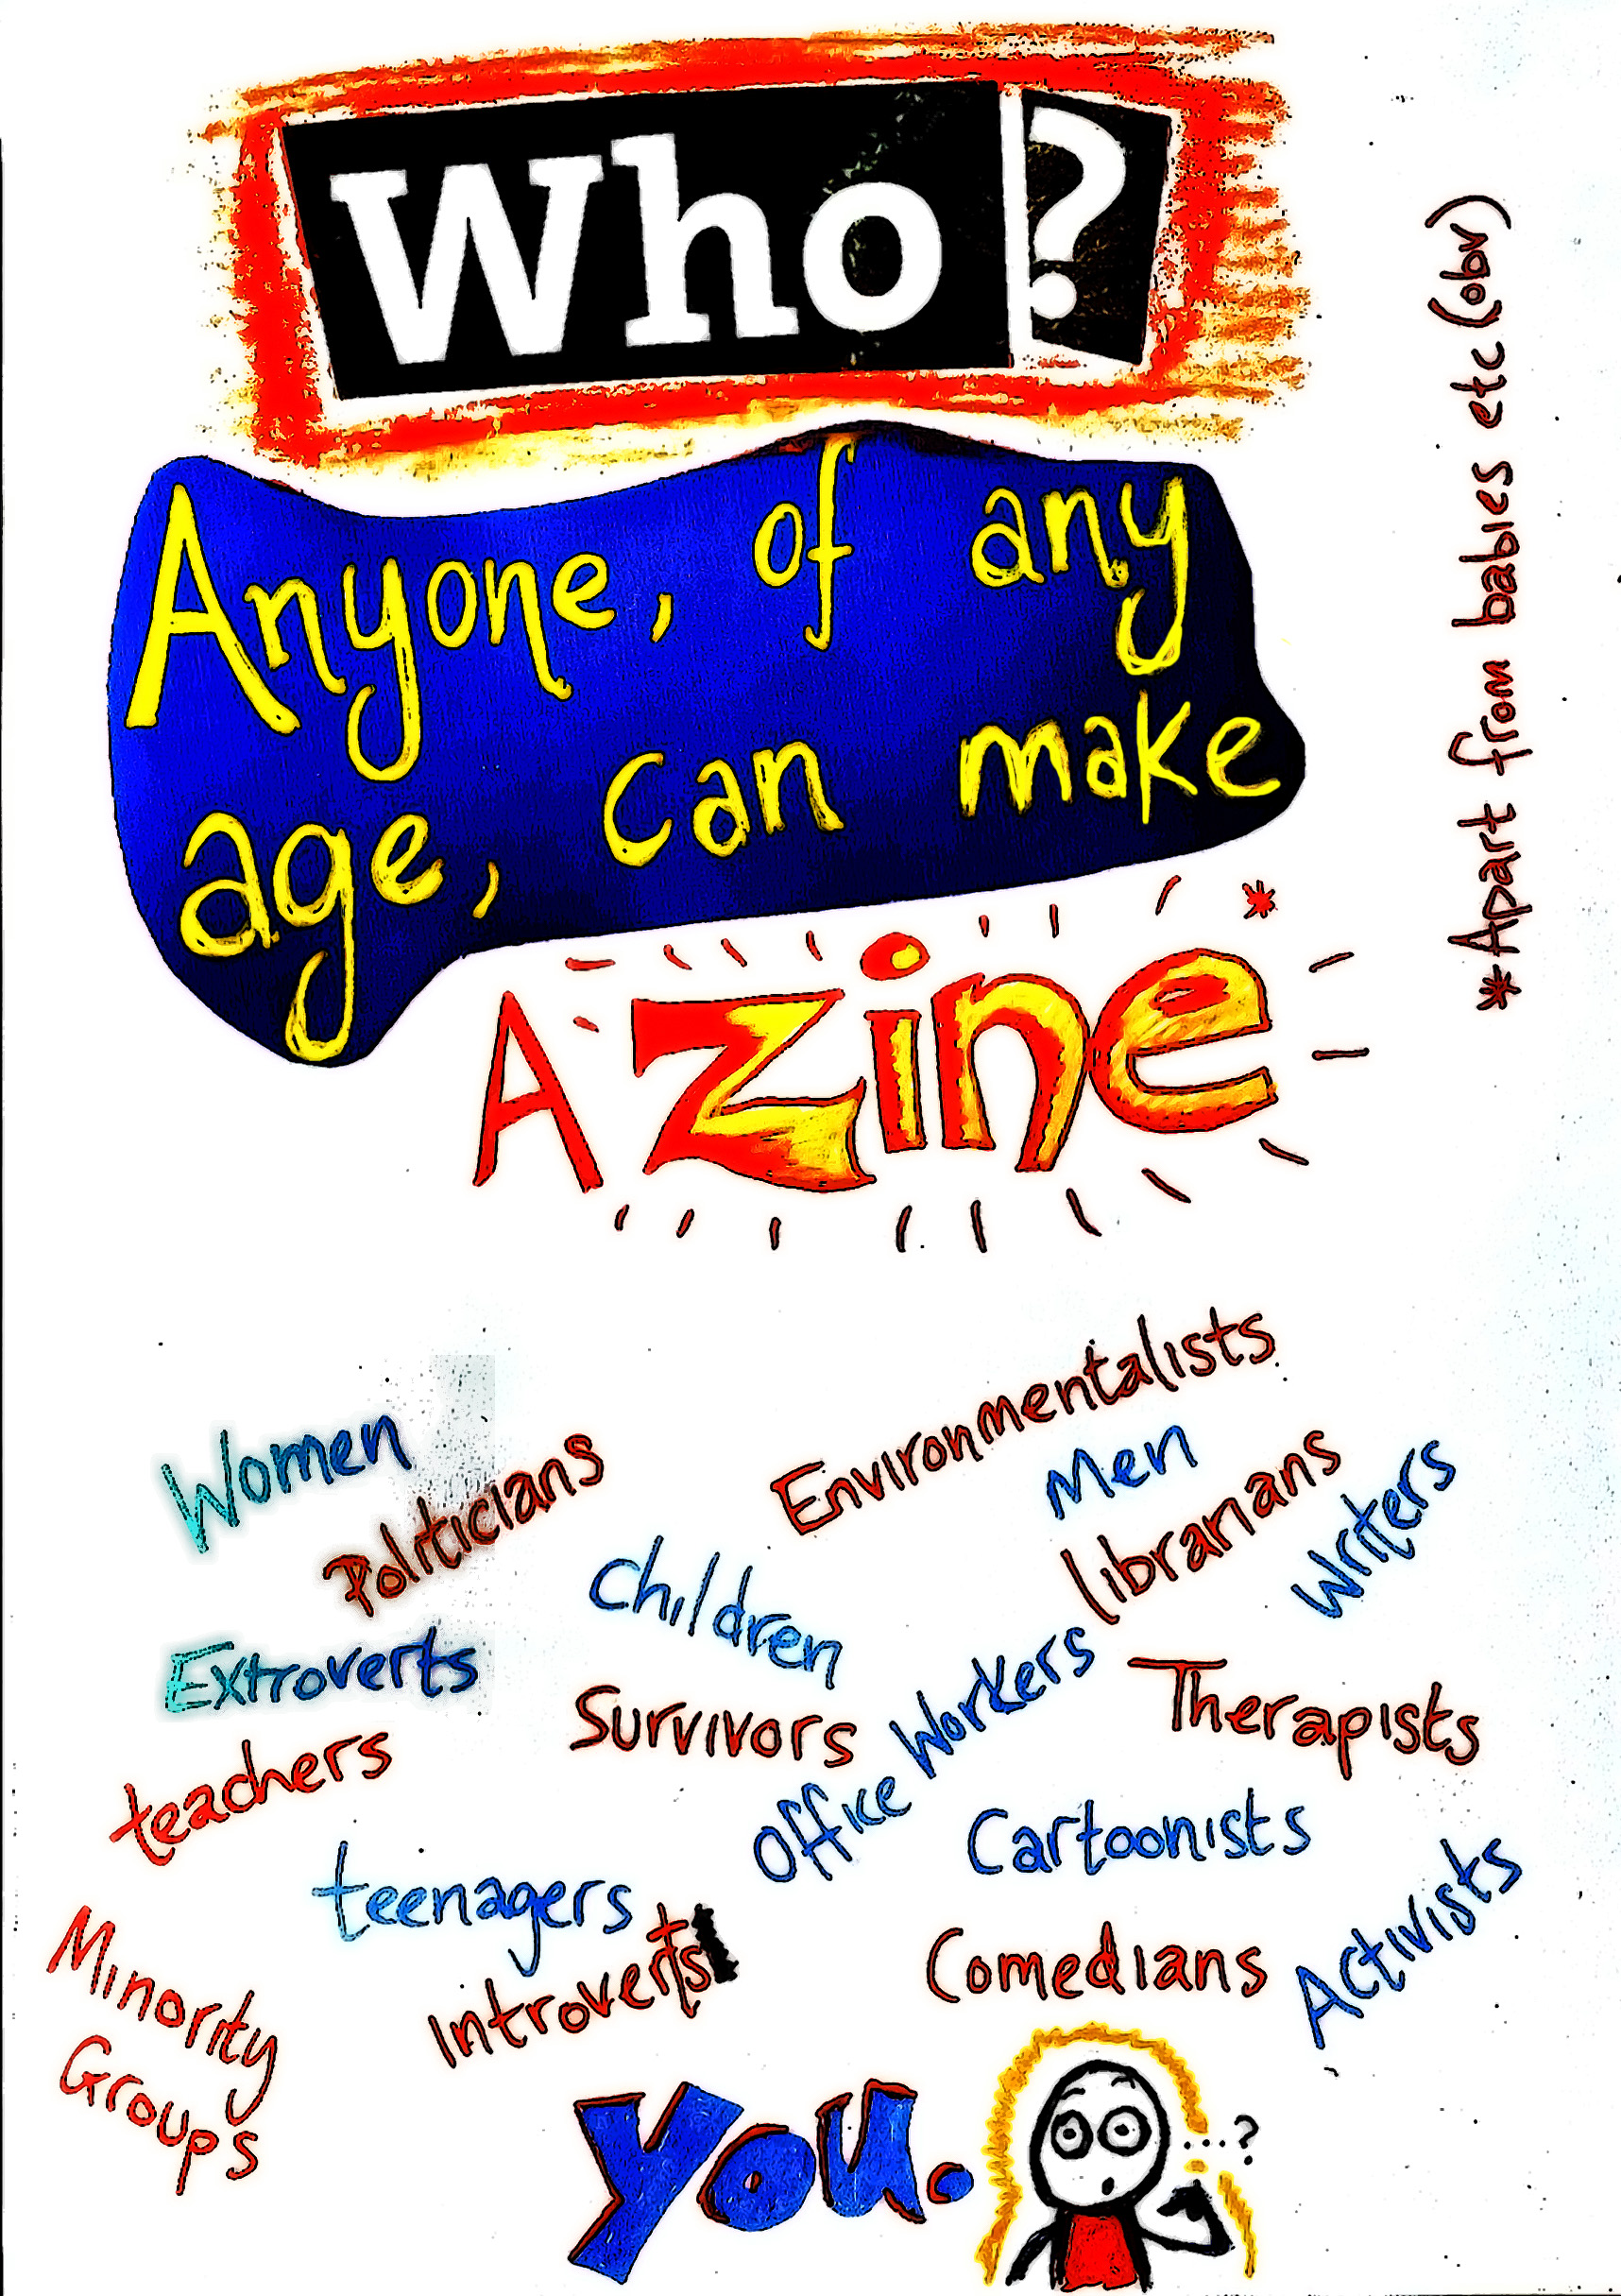 Who?
Anyone, of any
age, can make
A Zine *
*Apart from babies etc (obv)
Women
Politicians
Environmentalists
Men
librarians
Writers
Children
Extroverts
Survivors
Office Workers
Therapists
teachers
teenagers
Cartoonists
Activists
Minority
Groups
Introverts
Comedians
You.
...?